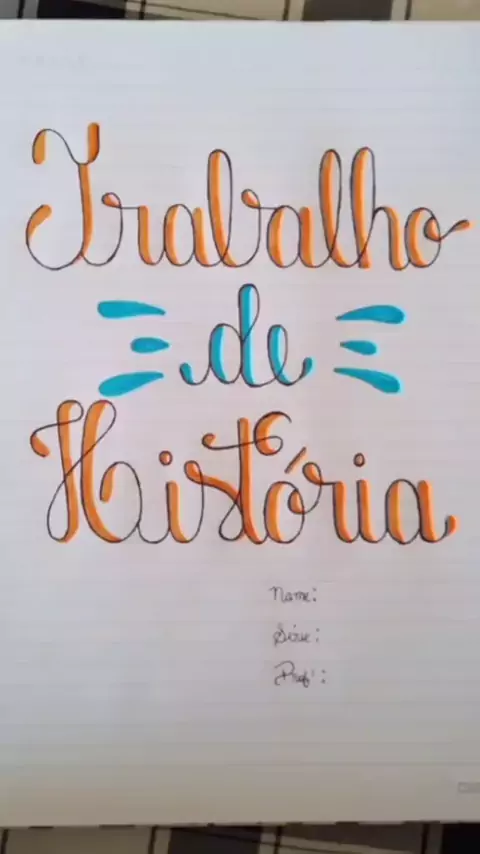 Trabalho
de
História
Nome:
Série:
Prof':